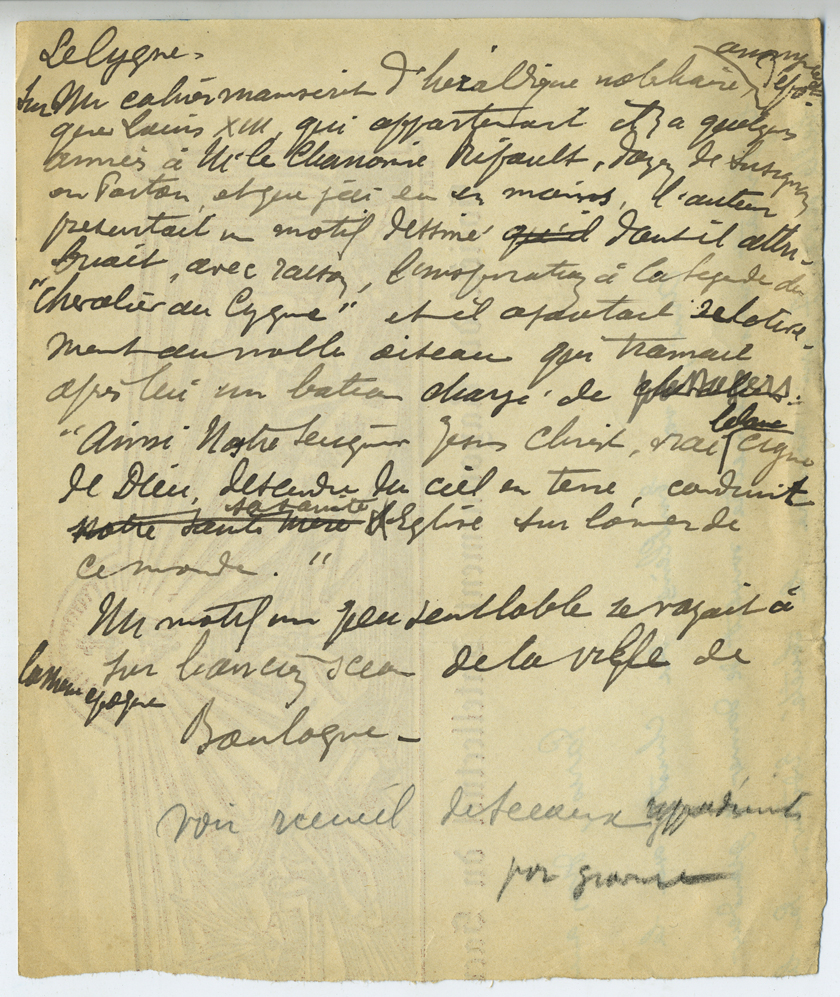 Le Cygne -
Sur Un cahier manuscrit d'héraldique nobiliaire, anonyme et d'épo-
que Louis XIII, qui appartenait il y a quelques
années à Mr le Chanoine Rifault, doyen de Lusignan
en Poitou, et que j'ai eu en mains, l'auteur
présentait un motif dessiné qu'il dont il attri-
buait, avec raison, l'inspiration à la légende du
"Chevalier au Cygne" et il ajoutait relative-
ment au noble oiseau qui trainait
après lui un bateau chargé de passagers:
"Ainsi Nostre Seigneur Jesus Christ, vrai blanc Cigne
de Dieu, descendu du ciel en terre, conduit
notre sainte mère sa sainte Eglise sur la mer de
ce monde. "
Un motif un peu semblable se voyait à
la même époque sur l'ancien sceau de la ville de
Boulogne -
Voir recueil de sceaux
par gravure